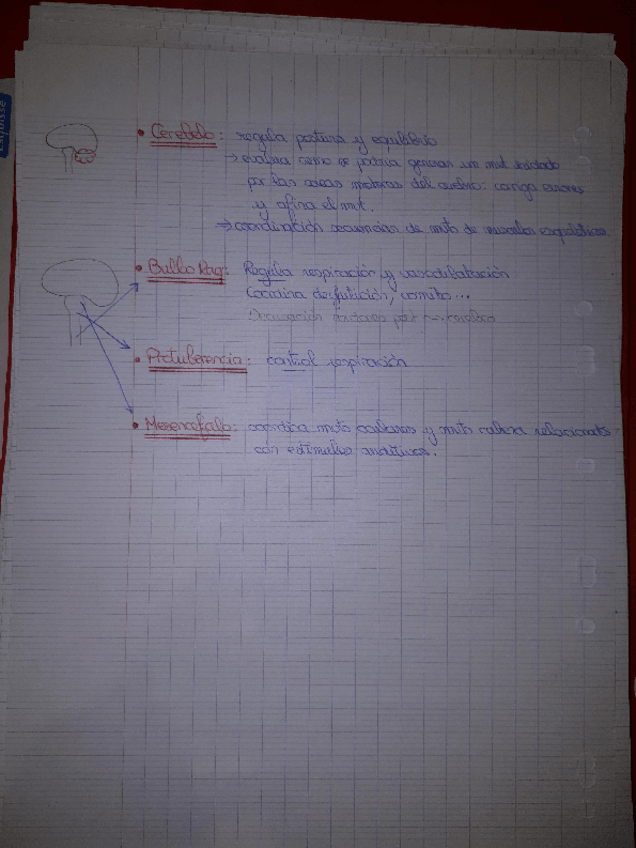 Esquisse
• Cerebelo: regula postura y equilibrio
→ evalua como se podria generar un mvt
por las areas motoras del cerebro: corrige errores
y afina el mvt.
⇒ coordinación secuencias de mvts de musculos esqueléticos
• Bulbo Raq: Regula respiración y vasodilatación
Coordina deglutición, vomito...
• Protuberencia: control respiración
• Mesencefalo: coordina mvts oculares y mvts cabeza relacionados
con estimulos auditivos.